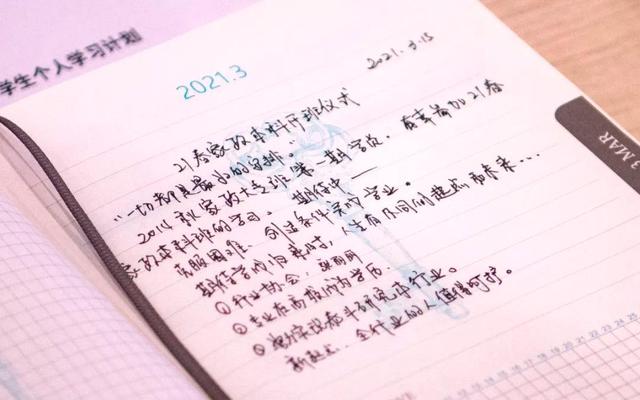 学生个人学习计划
2021.3
2021.3.15
21春家政本科开班仪式
"一切都是最好的安排。"
2014秋家政大专班第一期学员，有幸参加21春
家政本科班的学习。期待中——
克服困难、创造条件完成学业。
期待学成归来时，人生有不同的起点和未来...
①行业协会、
②专业在高校成为学历。
③
新起点，全行业的人值得呵护。
3 MAR